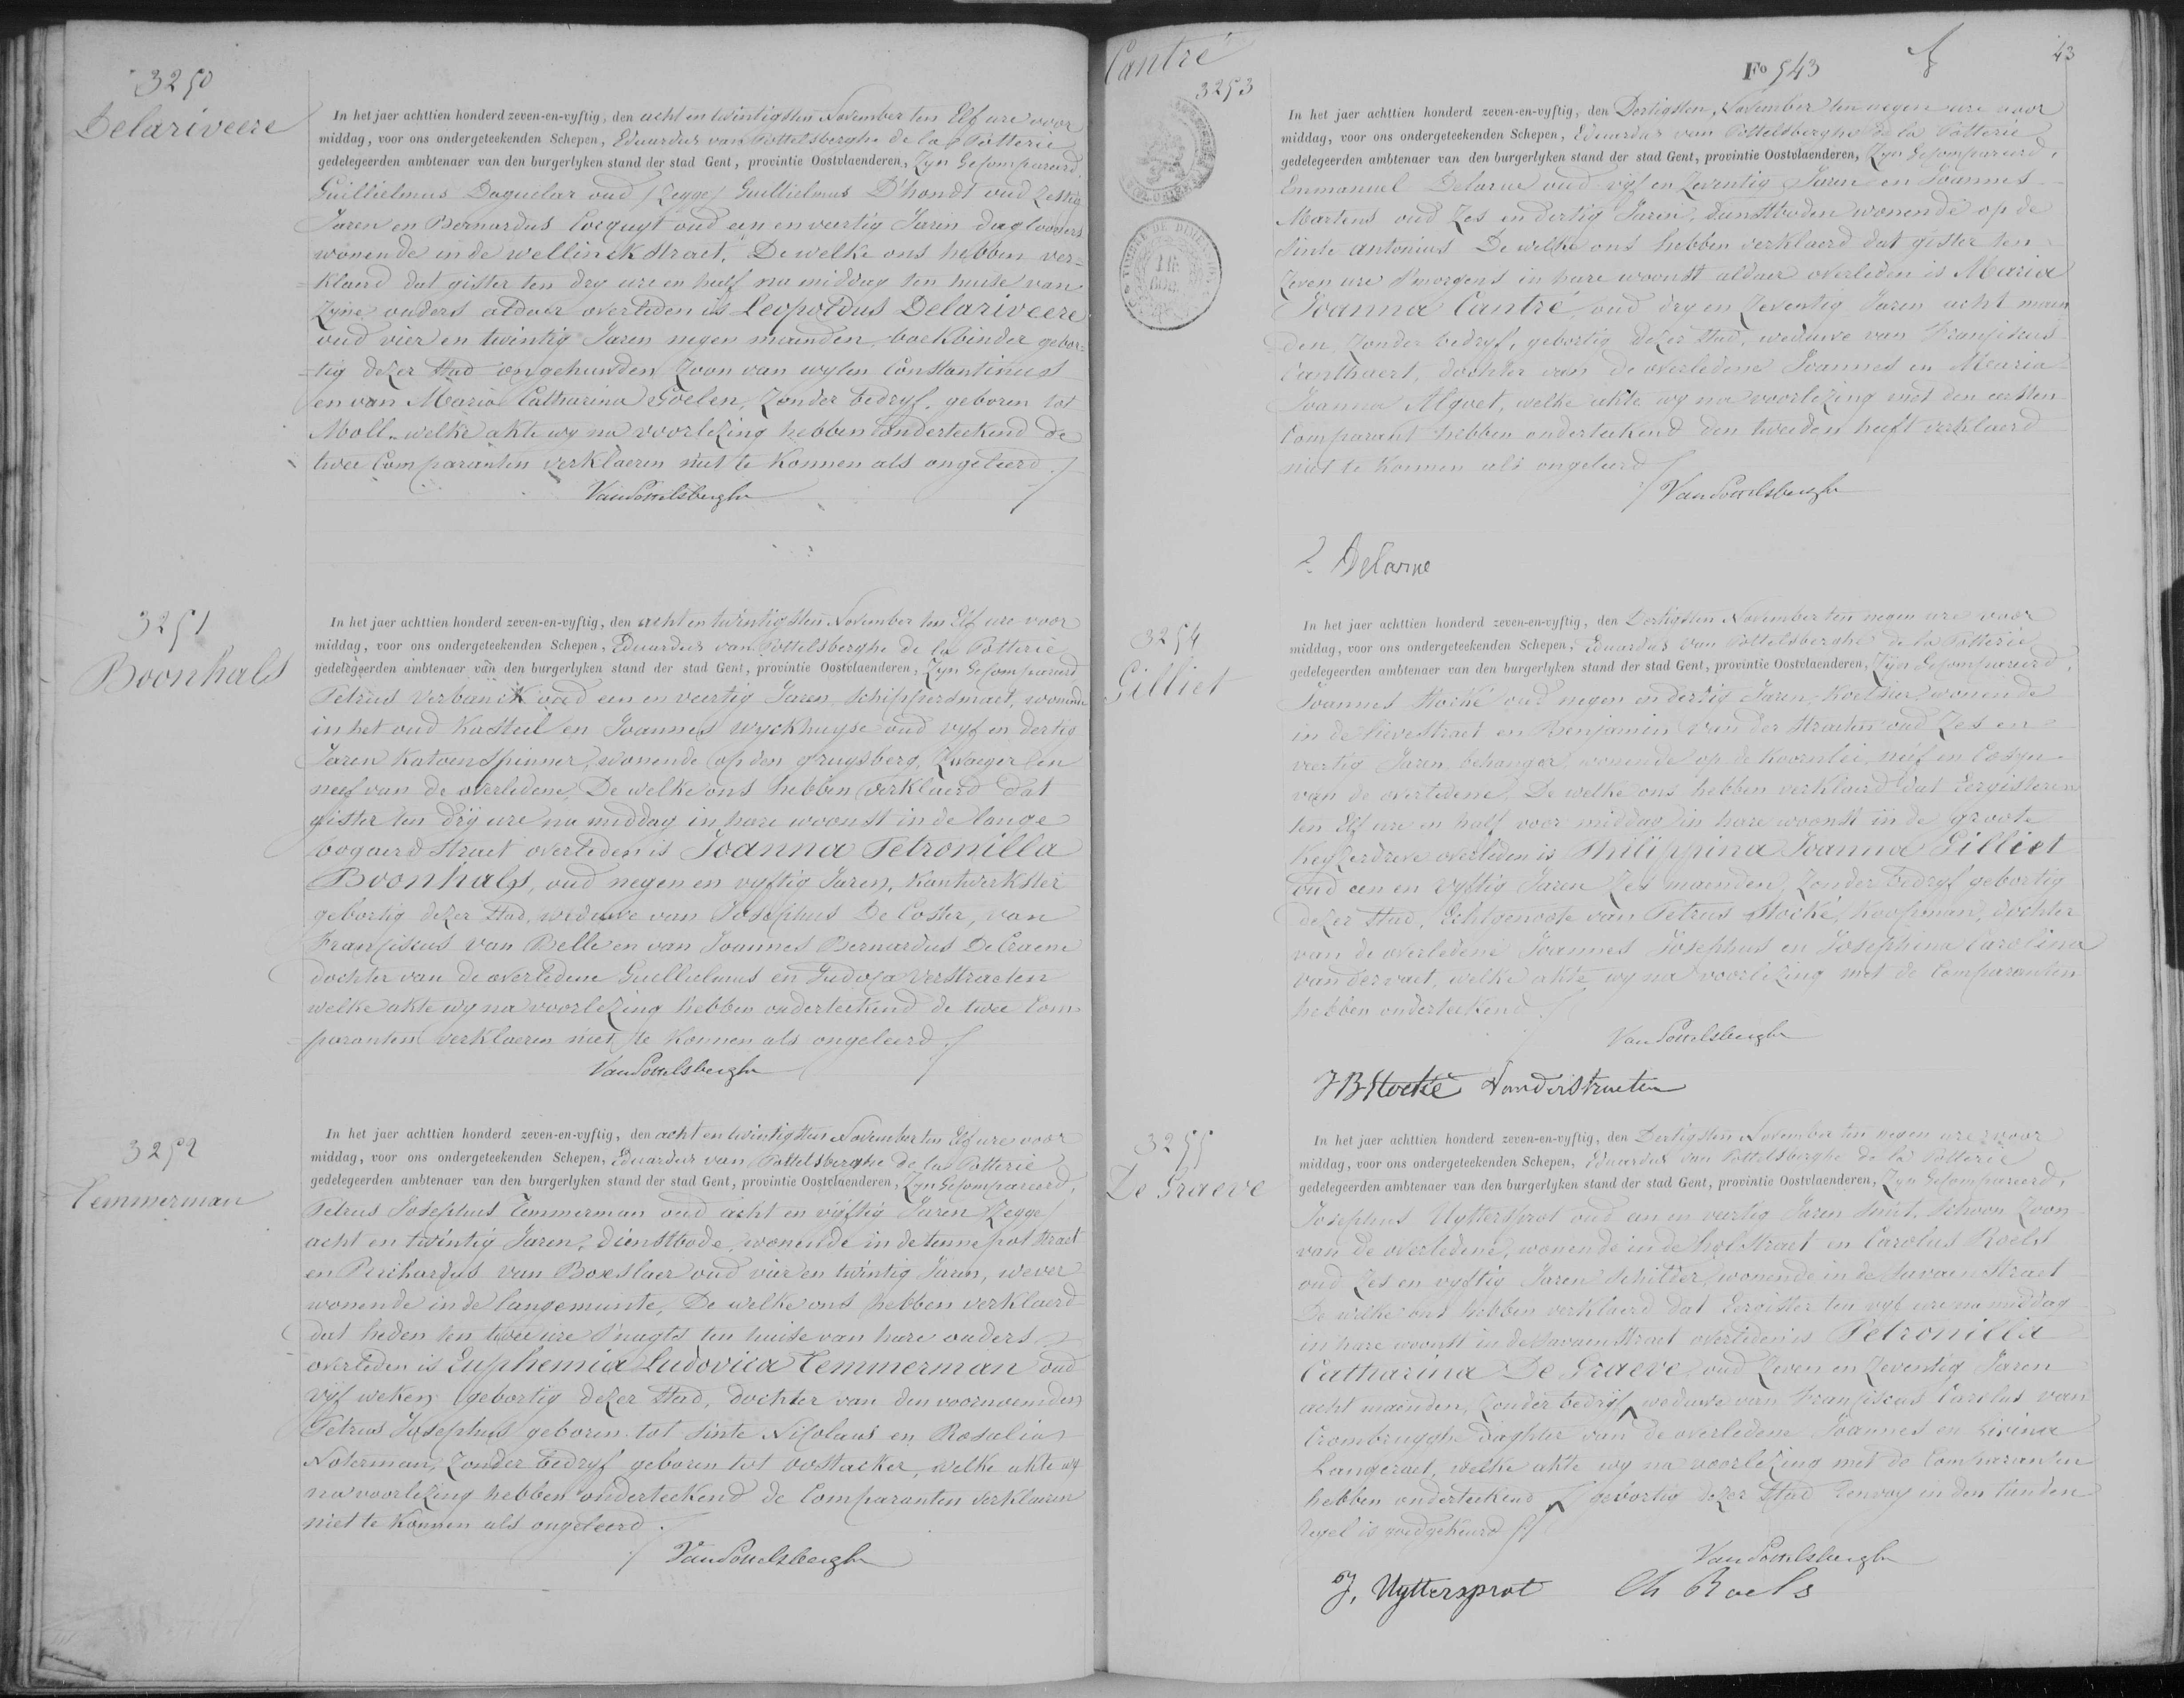 3250
Delariveere
In het jaer achttien honderd zeven-en-vyftig, den acht en twintigsten November ten Elf ure voor
middag, voor ons ondergeteekenden Schepen, Eduardus van Pottelsberghe de la Potterie
gedelegeerden ambtenaer van den burgerlyken stand der stad Gent, provintie Oostvlaenderen, Zyn Gecompareerd.
Guillielmus Daquelar oud (zegge) Guillielmus D'hondt oud Zestig
Jaren en Bernardus Cocquyt oud een en veertig Jaren daglooners
wonende in de wellinckstraet. De welke ons hebben ver=
=klaerd dat gister ten dry ure en half na middag ten huise van
Zyne ouders aldaer overleden is Leopoldus Delariveere
oud vier en twintig Jaren negen maenden, boekbinder gebor=
=tig dezer Stad ongehuwden Zoon van wylen Constantinus
en van Maria Catharina Goelen, Zonder bedryf, geboren tot
Moll. welke akte wy na voorlezing hebben onderteekend de
twee Comparanten verklaeren niet te konnen als ongeleerd.
VanPottelsberghe
3251
Boonhals
In het jaer achttien honderd zeven-en-vyftig, den acht en twintigsten November ten Elf ure voor
middag, voor ons ondergeteekenden Schepen, Eduardus van Pottelsberghe de la Potterie
gedelegeerden ambtenaer van den burgerlyken stand der stad Gent, provintie Oostvlaenderen, Zyn Gecompareerd
Petrus Verbanck oud een en veertig Jaren, Schippersmaet, wonende
in het oud Kasteel en Joannes Wyckhuyse oud vyf en dertig
Jaren Katoenspinner, wonende op den bruysberg, Zwager en
neef van de overledene, De welke ons hebben verklaerd dat
gister ten dry ure na middag in hare woonst in de lange
boogaerd Straet overleden is Joanna Petronilla
Boonhals, oud negen en vyftig Jaren, Kantwerkster
gebortig dezer Stad, weduwe van Josephus De Coster, van
Franciscus van Belle en van Joannes Bernardus De Craene
dochter van de overledene Guillielmus en Judoca Verstraeten
welke akte wy na voorlezing hebben onderteekend de twee Com=
=paranten verklaeren niet te konnen als ongeleerd.
VanPottelsberghe
3252
Temmerman
In het jaer achttien honderd zeven-en-vyftig, den acht en twintigsten November ten Elf ure voor
middag, voor ons ondergeteekenden Schepen, Eduardus van Pottelsberghe de la Potterie
gedelegeerden ambtenaer van den burgerlyken stand der stad Gent, provintie Oostvlaenderen, Zyn Gecompareerd,
Petrus Josephus Temmerman oud acht en vyftig Jaren (Zegge)
acht en twintig Jaren, Dienstbode, wonende in de tennepot Straet
en van Boxslaer oud vier en twintig Jaren, wever
wonende in de langemunte, De welke ons hebben verklaerd
dat heden ten twee ure S'nagts ten huise van hare ouders
overleden is Euphemia Ludovica Temmerman oud
vyf weken gebortig dezer Stad, dochter van den voornoemden
Petrus Josephus geboren tot Sinte Nicolaus en Rosalia
Noterman, Zonder bedryf geboren tot Oostacker, welke akte wy
na voorlezing hebben onderteekend de Comparanten verklaeren
niet te konnen als ongeleerd.
VanPottelsberghe
Cantré
3253
Fo 543
43
In het jaer achttien honderd zeven-en-vyftig, den Dertigsten November ten negen ure voor
middag, voor ons ondergeteekenden Schepen, Eduardus van Pottelsberghe de la Potterie
gedelegeerden ambtenaer van den burgerlyken stand der stad Gent, provintie Oostvlaenderen, Zyn Gecompareerd,
Emmanuel Delarue oud vyf en Zeventig Jaren en Joannes
Martens oud Zes en dertig Jaren, dienstboden wonende op de
Sinte Antonius De welke ons hebben verklaerd dat gister ten
Zeven ure S'morgens in hare woonst aldaer overleden is Maria
Joanna Cantré, oud dry en Zeventig Jaren acht maen
=den, Zonder bedryf, gebortig dezer Stad, weduwe van Franciscus
Canthaert, dochter van de overledene Joannes en Maria
Joanna Algoet, welke akte wy na voorlezing met den eersten
Comparant hebben onderteekend den tweeden heeft verklaerd
niet te konnen als ongeleerd
VanPottelsberghe
Delarue
3254
Gilliet
In het jaer achttien honderd zeven-en-vyftig, den Dertigsten November ten negen ure voor
middag, voor ons ondergeteekenden Schepen, Eduardus van Pottelsberghe de la Potterie
gedelegeerden ambtenaer van den burgerlyken stand der stad Gent, provintie Oostvlaenderen, Zyn Gecompareerd,
Joannes Stocké oud negen en dertig Jaren, Koetsier, wonende
in de lievestraet en Benjamin Van der Straeten oud Zes en
veertig Jaren behanger, wonende op de Koornlei, neef en Cosyn
van de overledene, De welke ons hebben verklaerd dat Eergisteren
ten Elf ure en half voor middag in hare woonst in de groote
Keyzerdreve overleden is Philippina Joanna Gilliet
oud een en vyftig Jaren Zes maenden, Zonder bedryf gebortig
dezer Stad, Echtgenoote van Petrus Stocké, Koopman, dochter
van de overledene Joannes Josephus en Josephina Carolina
vandervaet, welke akte wy na voorlezing met de Comparanten
hebben onderteekend.
VanPottelsberghe
J B Stocké Vanderstraeten
3255
De Graeve
In het jaer achttien honderd zeven-en-vyftig, den Dertigsten November ten negen ure voor
middag, voor ons ondergeteekenden Schepen, Eduardus van Pottelsberghe de la Potterie
gedelegeerden ambtenaer van den burgerlyken stand der stad Gent, provintie Oostvlaenderen, Zyn Gecompareerd,
Josephus Uyttersprot oud een en veertig Jaren Smit, Schoon Zoon
van de overledene, wonende in de holstraet en Carolus Roels
oud Zes en vyftig Jaren Schilder, wonende in de Savaen Straet
De welke ons hebben verklaerd dat Eergister ten vyf ure na middag
in hare woonst in de Savaen Straet overleden is Petronilla
Catharina De Graeve, oud Zeven en Zeventig Jaren
acht maenden, Zonder bedryf, weduwe van Franciscus Carolus van
Crombrugghe daghter van de overledene Joannes en Livina
Langeraet, welke akte wy na voorlezing met de Comparanten
hebben onderteekend gebortig dezer Stad renvoy in den tienden
regel is goedgekeurd
VanPottelsberghe
J, Uyttersprot Ch Roels